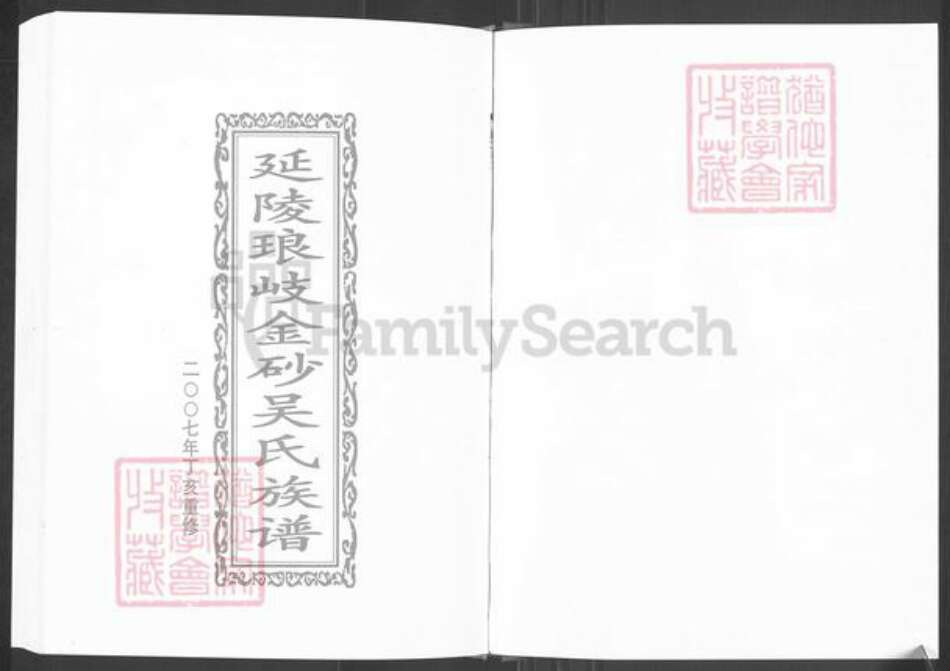 延陵琅岐金砂吴氏族谱
二〇〇七年丁亥重修
猶他家
譜學會
收藏
猶他家
譜學會
收藏
FamilySearch